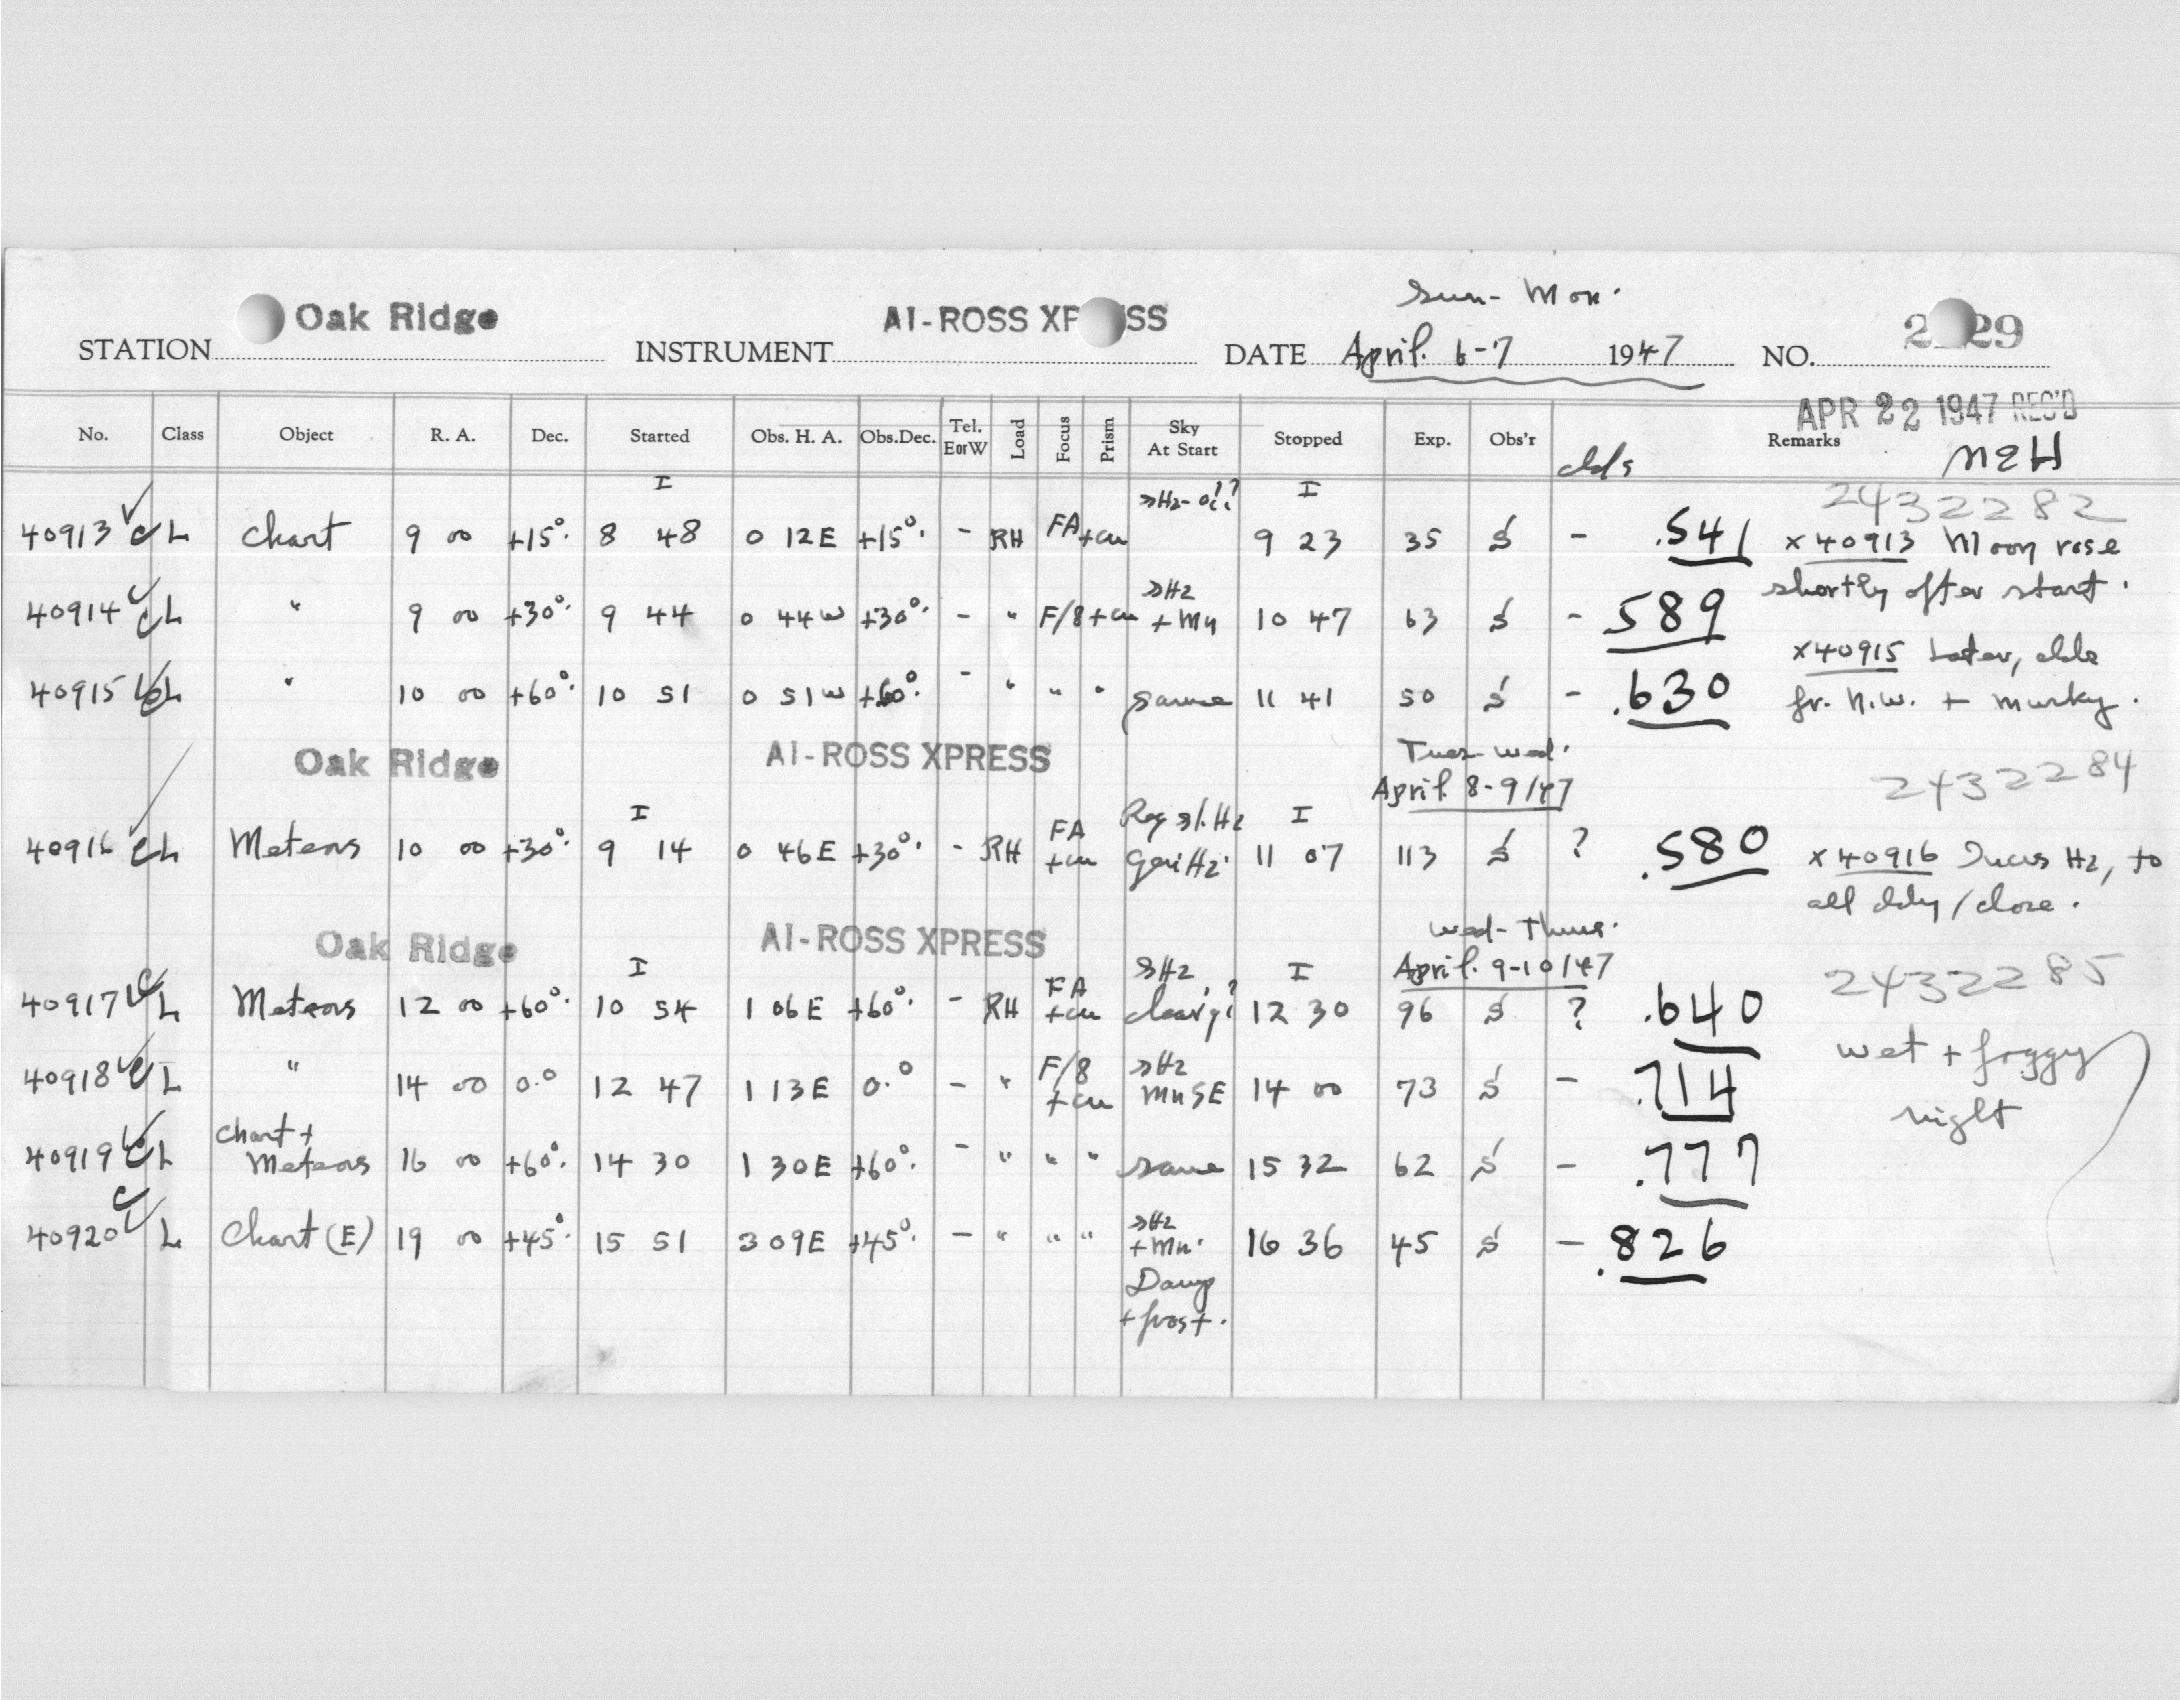 Sun-Mon.
Oak Ridge AI-ROSS XP SS 2 29
STATION INSTRUMENT DATE April 6-7 1947 NO.
APR 22 1947 REC'D
No. Class Object R. A. Dec. Started Obs. H. A. Obs.Dec. Tel. EorW Load Focus Prism Sky At Start Stopped Exp. Obs'r clds Remarks MEH
I I 2432282
40913 L Chart 9 00 +15°. 8 48 0 12E +15°. - RH FA +cu sHz-o?? 9 23 35 S - .541 x 40913 Moon rose
shortly after start.
40914 L " 9 00 +30°. 9 44 0 44W +30°. - " F/8 +cu sHz + Mn 10 47 63 S - 589
40915 L " 10 00 +60°. 10 51 0 51W +60°. - " " " same 11 41 50 S - .630 x40915 Later, clds
fr. N.W. + murky.
Oak Ridge AI-ROSS XPRESS Tues-Wed.
April 8-9/47 2432284
I I
40916 L Meteors 10 00 +30°. 9 14 0 46E +30°. - RH FA +cu Reg sl. Hz 11 07 113 S ? .580 x 40916 Hz, to
all cldy/close.
Oak Ridge AI-ROSS XPRESS Wed-Thurs.
April. 9-10/47 2432285
I I
40917 L Meteors 12 00 +60°. 10 54 1 06E +60°. - RH FA +cu sHz, 12 30 96 S ? .640
wet + foggy
night
40918 L " 14 00 0.° 12 47 1 13E 0.° - " F/8 +cu sHz Mn SE 14 00 73 S - .714
40919 L Chart + Meteors 16 00 +60°. 14 30 1 30E +60°. - " " " same 15 32 62 S - .777
40920 L Chart (E) 19 00 +45°. 15 51 3 09E +45°. - " " " sHz + Mn. 16 36 45 S - .826
Damp
+ frost.